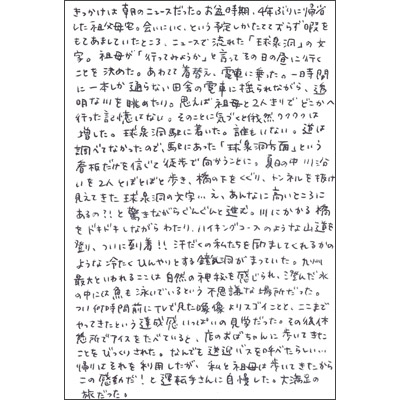 きっかけは朝のニュースだった。お盆時期、4年ぶりに帰省
した祖父母宅。会いにいく、という予定しかたてておらず暇を
もてあましていたところ、ニュースで流れた「球泉洞」の文
字。祖母が「行ってみようか」と言ってその日の昼に行く
ことを決めた。あわてて着替え、電車に乗った。一時間
に一本しか通らない田舎の電車に揺られながら、透
明な川を眺めたり。思えば祖母と2人きりでどこかへ
行った記憶はない。そのことに気づくと俄然ワクワクは
増した。球泉洞駅に着いた。誰もいない。道は
調べてなかったので、駅にあった「球泉洞方面」という
看板だけを信じて徒歩で向かうことに。真夏の中川沿
いを2人とぼとぼと歩き、橋の下をくぐり、トンネルを抜け
見えてきた球泉洞の文字…え、あんなに高いところに
あるの?!と驚きながらぐんぐんと進む。川にかかる橋
をドキドキしながらわたり、ハイキングコースのような山道を
登り、ついに到着!!汗だくの私たちを励ましてくれるかの
ような冷たくひんやりとする鍾乳洞がまっていた。九州
最大といわれるここは自然の神秘を感じられ、澄んだ水
の中には魚も泳いでいるという不思議な場所だった。
つい何時間前にTVで見た映像よりスゴイことと、ここまで
やってきたという達成感いっぱいの見学だった。その後休
憩所でアイスをたべていると、店のおばちゃんに歩いてきた
ことをびっくりされた。なんでも送迎バスを呼べたらしい…
帰りはそれを利用したが、私と祖母は歩いてきたから
この感動だ!と運転手さんに自慢した。大満足の
旅だった。